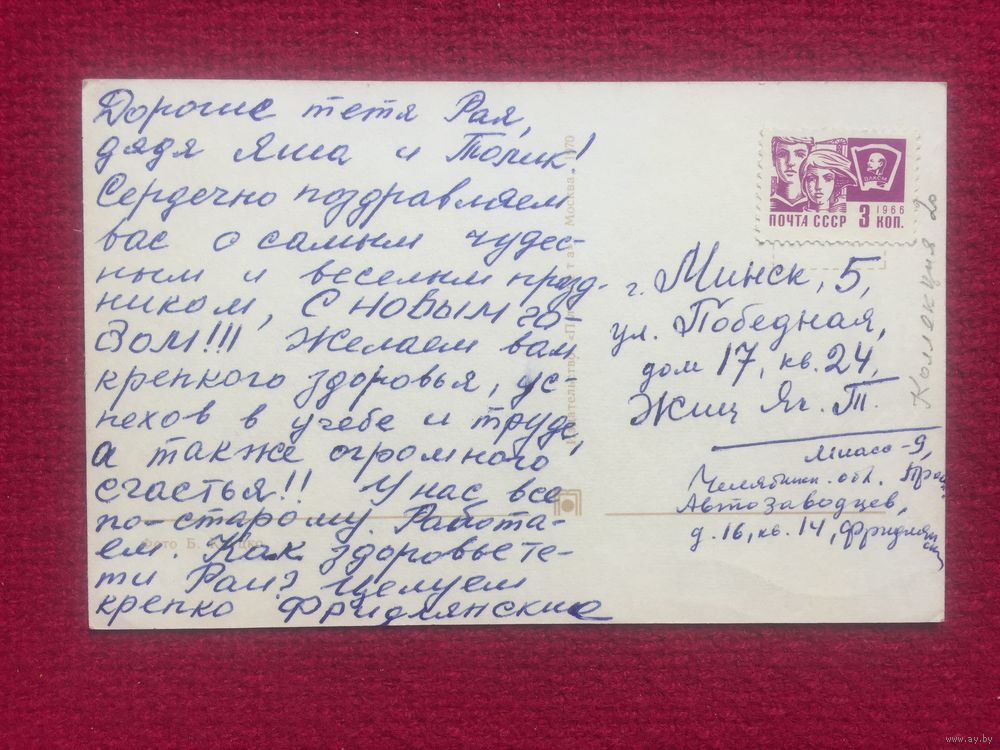 Дорогие тетя Рая,
дядя Яша и Толик!
Сердечно поздравляем
вас с самым чудес-
ным и веселым празд-
ником, С НОВЫМ го-
дом!!! Желаем вам
крепкого здоровья, ус-
пехов в учебе и труде,
а также огромного
счастья!! У нас все
по-старому. Работа-
ем. Как здоровье те-
ти Раи? Целуем
крепко Фридлянские
Фото Б.
Москва 1970
ВЛКСМ
1966
ПОЧТА СССР 3 КОП.
г. Минск, 5,
ул. Победная,
дом 17, кв. 24,
Жиц Яг. Т.
Миасс-9,
Челябинск. обл. Пр.
Автозаводцев,
д. 16, кв. 14, Фридлянские
20
www.ay.by